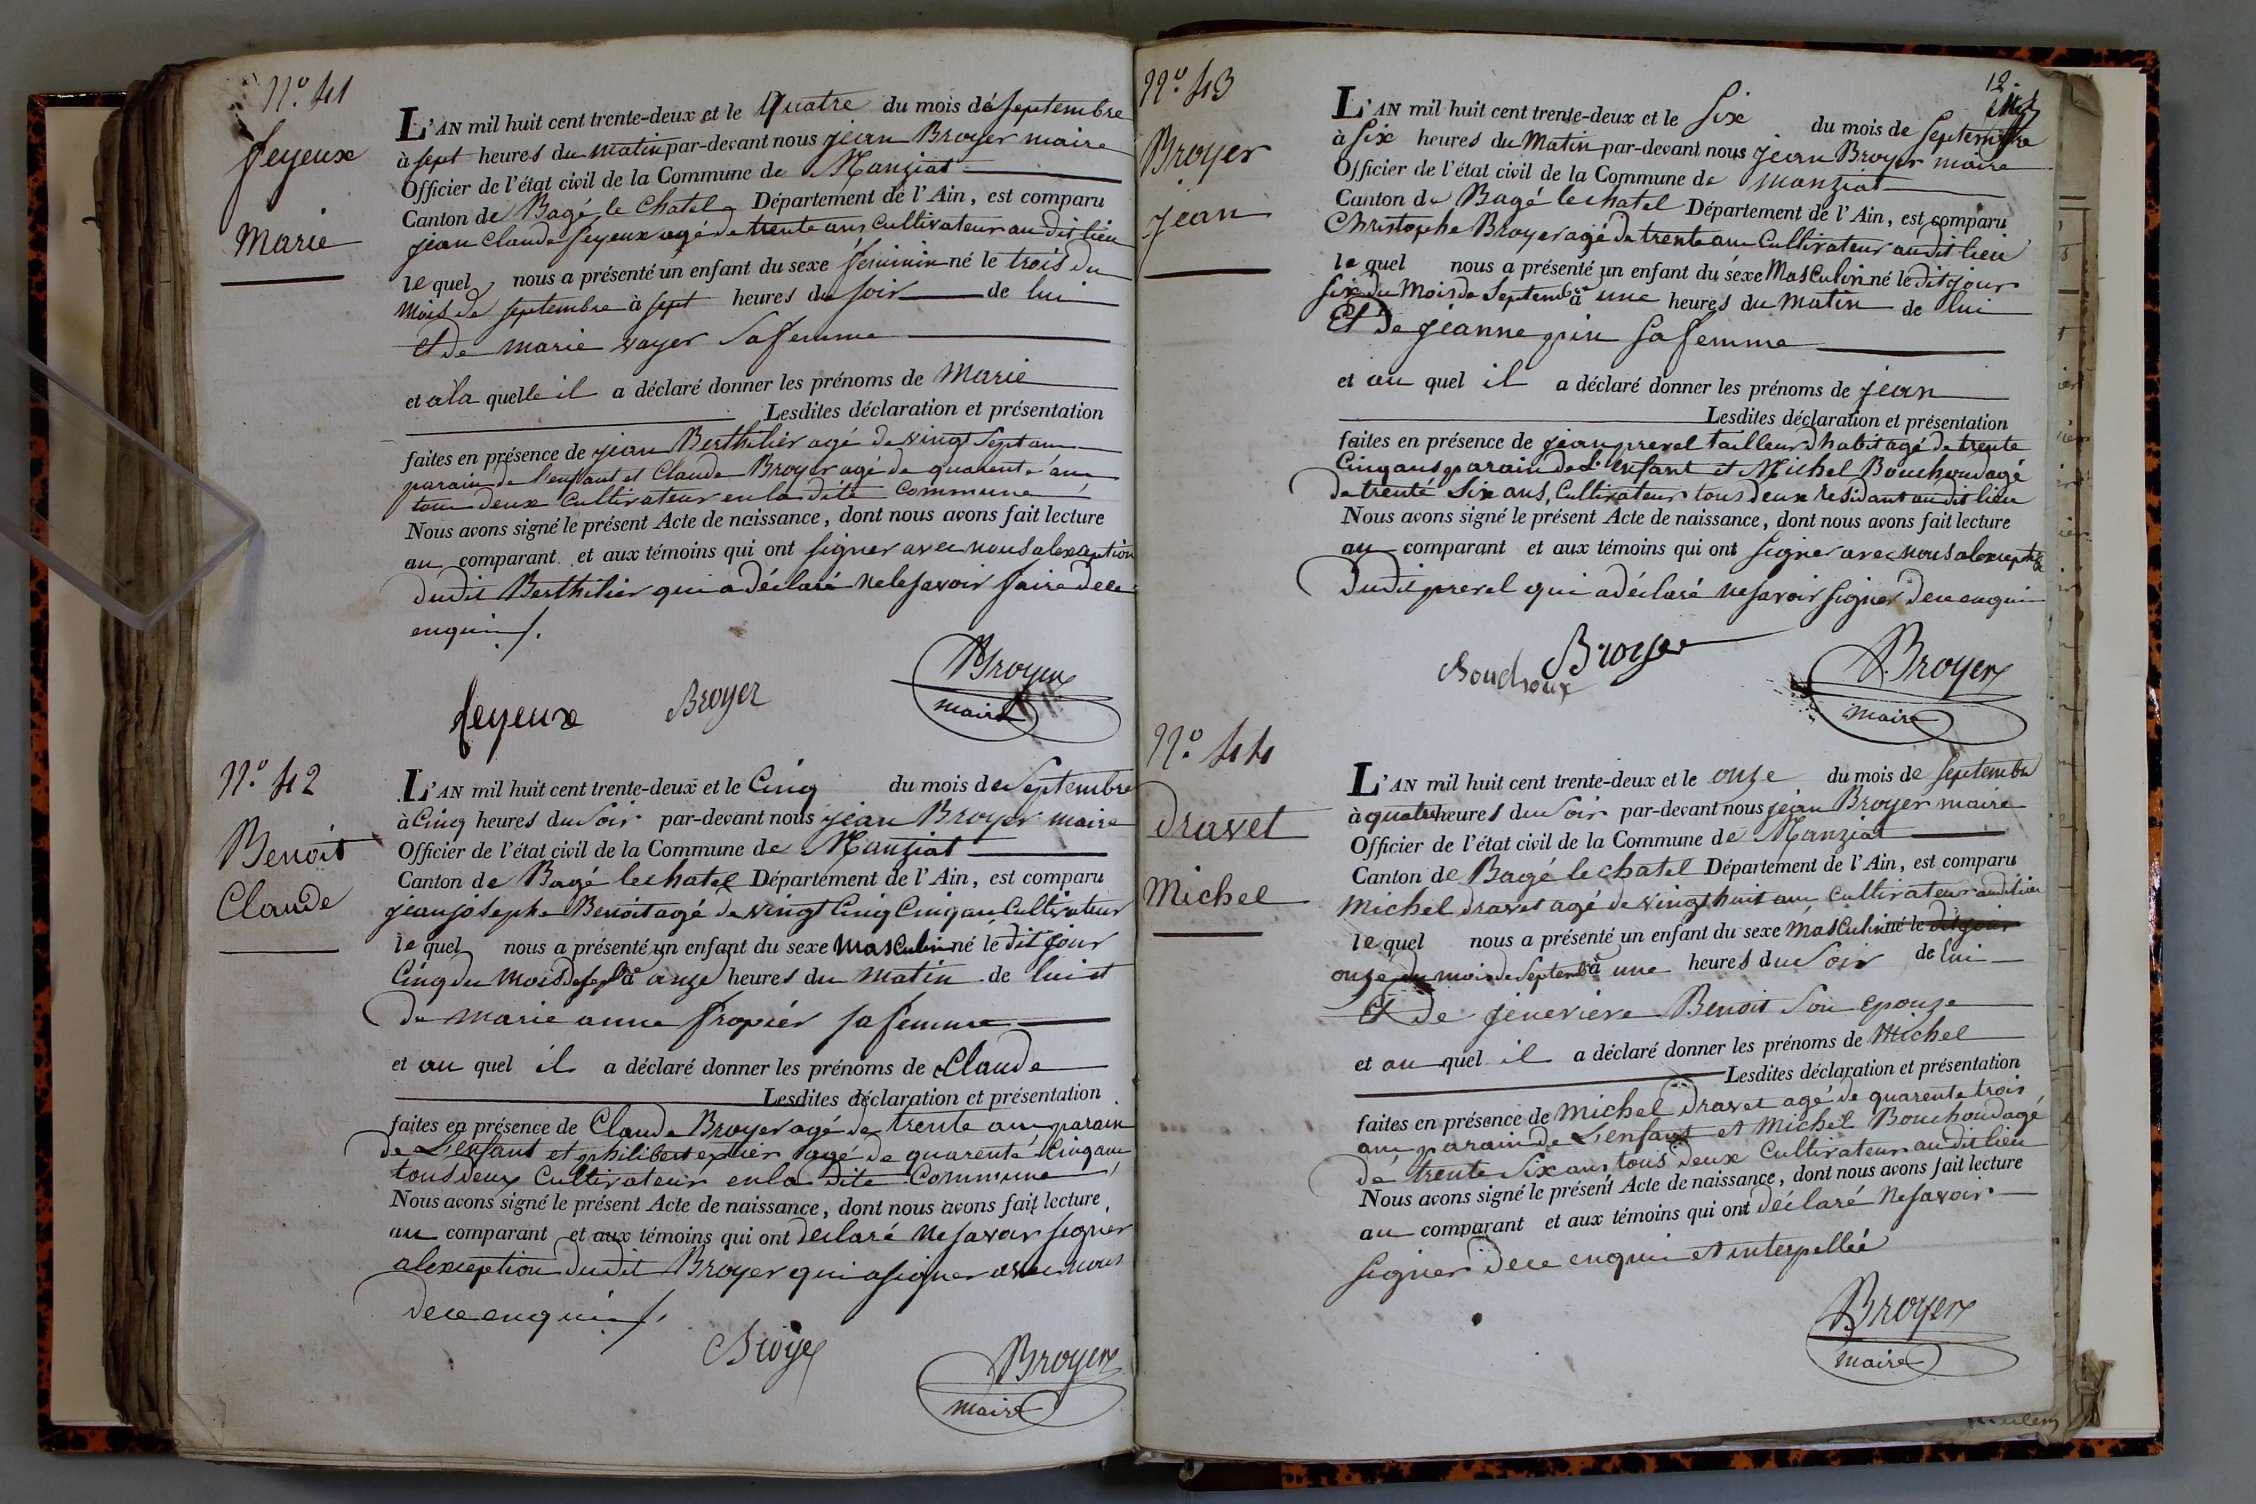 N.º 41
feyeux
Marie
L'AN mil huit cent trente-deux et le quatre du mois de septembre
à sept heures du matin par-devant nous jean Broyer maire
Officier de l'état civil de la Commune de Manziat
Canton de Bagé le Chatel Département de l'Ain, est comparu
jean claude feyeux agé de trente ans cultivateur au dit lieu
le quel nous a présenté un enfant du sexe féminin né le trois du
mois de septembre à sept heures du soir de lui
et de marie vayer sa femme
et a la quelle il a déclaré donner les prénoms de Marie
Lesdites déclaration et présentation
faites en présence de jean Berthilier agé de vingt sept ans
parain de l'enfant et Claude Broyer agé de quarente ans
tous deux Cultivateur en la dite Commune
Nous avons signé le présent Acte de naissance, dont nous avons fait lecture
au comparant et aux témoins qui ont signer avec nous a lexception
dudit Berthilier qui a déclaré ne le savoir faire de ce
enquis
feyeux Broyer Broyer
maire
N.º 42
Benoit
Claude
L'AN mil huit cent trente-deux et le Cinq du mois de Septembre
à Cinq heures du Soir par-devant nous jean Broyer maire
Officier de l'état civil de la Commune de Manziat
Canton de Bagé le chatel Département de l'Ain, est comparu
jean josephe Benoit agé de vingt Cinq Cinq ans Cultivateur
le quel nous a présenté un enfant du sexe Masculin né le dit jour
Cinq du Mois de à onze heures du matin de lui et
de marie anne fropier sa femme
et au quel il a déclaré donner les prénoms de Claude
Lesdites déclaration et présentation
faites en présence de Claude Broyer agé de trente ans parain
de L'enfant et philibert agé de quarente Cinq ans
tous deux Cultivateur en la dite Commune
Nous avons signé le présent Acte de naissance, dont nous avons fait lecture
au comparant et aux témoins qui ont déclaré ne savoir signer
a lexception dudit Broyer qui a signer avec nous
de ce enquis
Broyer Broyer
maire
12
N.º 43
Broyer
jean
L'AN mil huit cent trente-deux et le Six du mois de Septembre
à Six heures du Matin par-devant nous jean Broyer maire
Officier de l'état civil de la Commune de manziat
Canton de Bagé le chatel Département de l'Ain, est comparu
Christophe Broyer agé de trente ans Cultivateur au dit lieu
le quel nous a présenté un enfant du sexe Masculin né le dit jour
six du Mois de Septembre à une heures du Matin de lui
Et de jeanne sa femme
et au quel il a déclaré donner les prénoms de jean
Lesdites déclaration et présentation
faites en présence de jean prevel tailleur dhabit agé de trente
Cinq ans parain de L'enfant et Michel Bouchoud agé
de trente Six ans, Cultivateur tous deux résidant au dit lieu
Nous avons signé le présent Acte de naissance, dont nous avons fait lecture
au comparant et aux témoins qui ont signer avec nous a lexception
dudit prevel qui a déclaré ne savoir signer de ce enquis
Bouchoux Broyer Broyer
maire
N.º 44
dravet
Michel
L'AN mil huit cent trente-deux et le onze du mois de septembre
à quatre heures du Soir par-devant nous jean Broyer maire
Officier de l'état civil de la Commune de Manziat
Canton de Bagé le chatel Département de l'Ain, est comparu
Michel dravet agé de vingt huit ans cultivateur au dit lieu
le quel nous a présenté un enfant du sexe Masculin né le dit jour
onze du mois de Septembre à une heures du Soir de lui
Et de jenevieve Benoit Son epouze
et au quel il a déclaré donner les prénoms de Michel
Lesdites déclaration et présentation
faites en présence de Michel dravet agé de quarente trois
ans parain de L'enfant et Michel Bouchoud agé
de trente Six ans tous deux Cultivateur au dit lieu
Nous avons signé le présent Acte de naissance, dont nous avons fait lecture
au comparant et aux témoins qui ont déclaré ne savoir
signer de ce enquis et interpellé
Broyer
maire